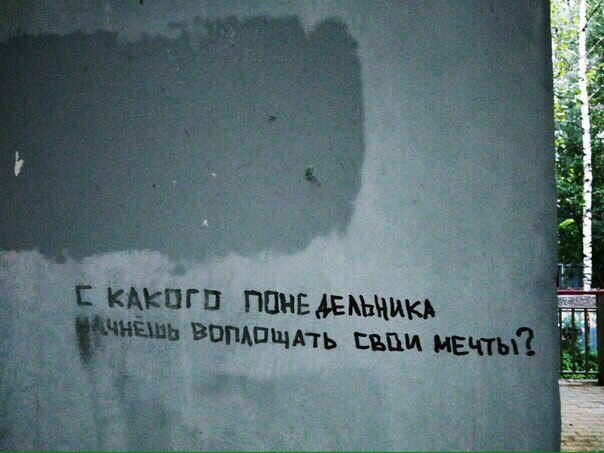 С КАКОГО ПОНЕДЕЛЬНИКА
НАЧНЁШЬ ВОПЛОЩАТЬ СВОИ МЕЧТЫ?